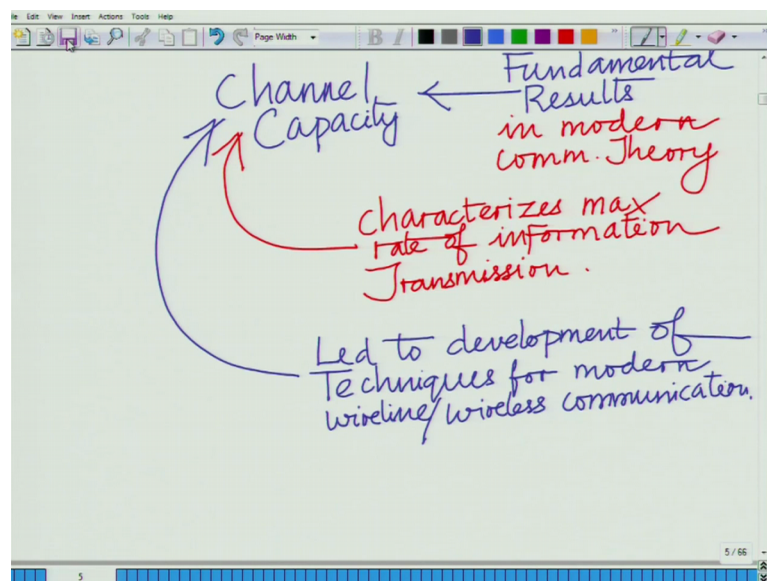 File Edit View Insert Actions Tools Help
Page Width
Channel
Capacity
Fundamental
Results
in modern
comm. Theory
Characterizes max
rate of information
Transmission.
Led to development of
Techniques for modern
wireline/wireless communication.
5 / 66
5